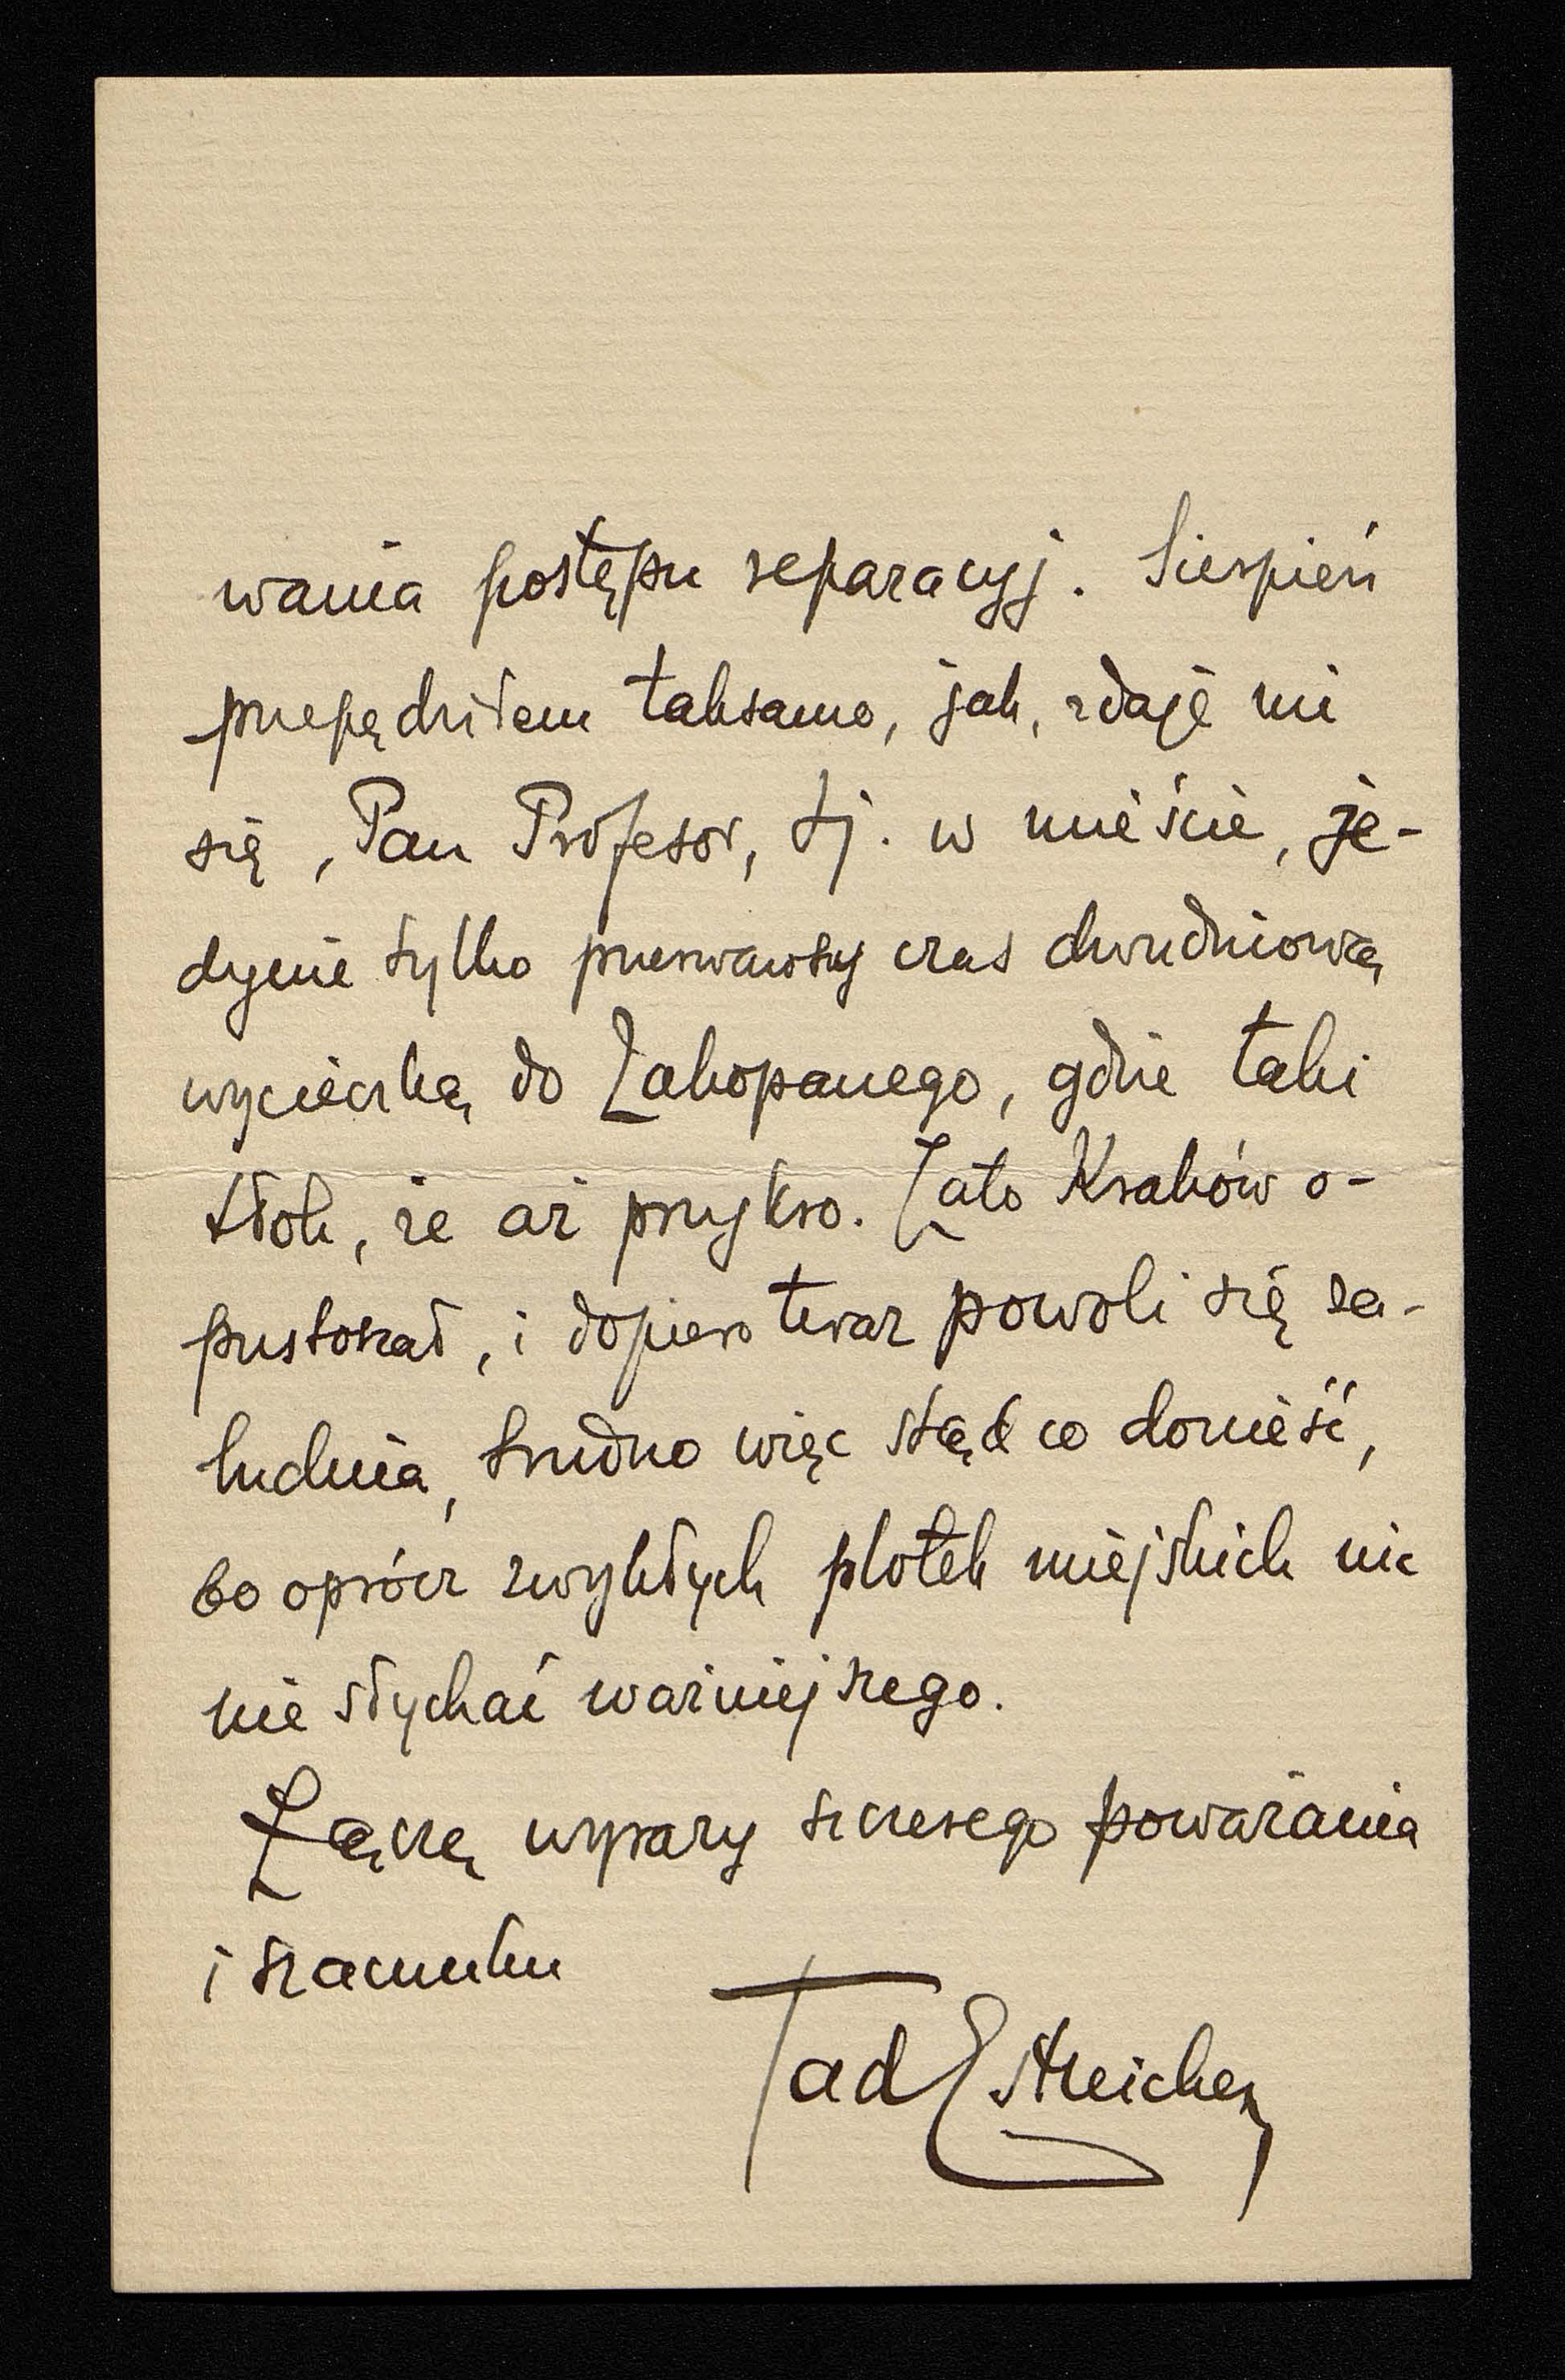 wania postępu reparacyj. Sierpień
przepędziłem taksamo, jak, zdaje mi
się, Pan Profesor, tj. w mieście, je-
dynie tylko przerwawszy czas dwudniową
wycieczką do Zakopanego, gdzie taki
tłok, że aż przykro. Zato Kraków o-
pustoszał, i dopiero teraz powoli się za-
ludnia, trudno więc stąd co donieść,
bo oprócz zwykłych plotek miejskich nic
nie słychać ważniejszego.
Łączę wyrazy szczerego poważania
i szacunku
Tad Estreicher